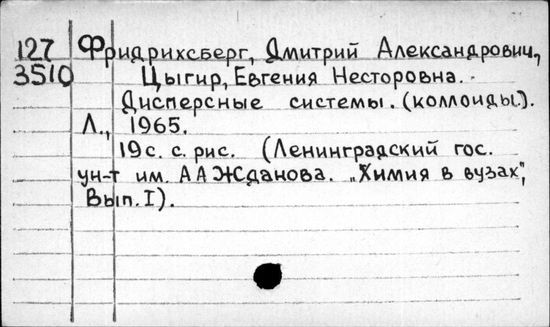 127 Фридрихсберг, Дмитрий Александрович,
3510 Цыгир, Евгения Несторовна.
Дисперсные системы. (коллоиды).
Л., 1965.
19 с. с. рис. (Ленинградский гос.
ун-т им. А А Жданова. „Химия в вузах",
Вып. I).